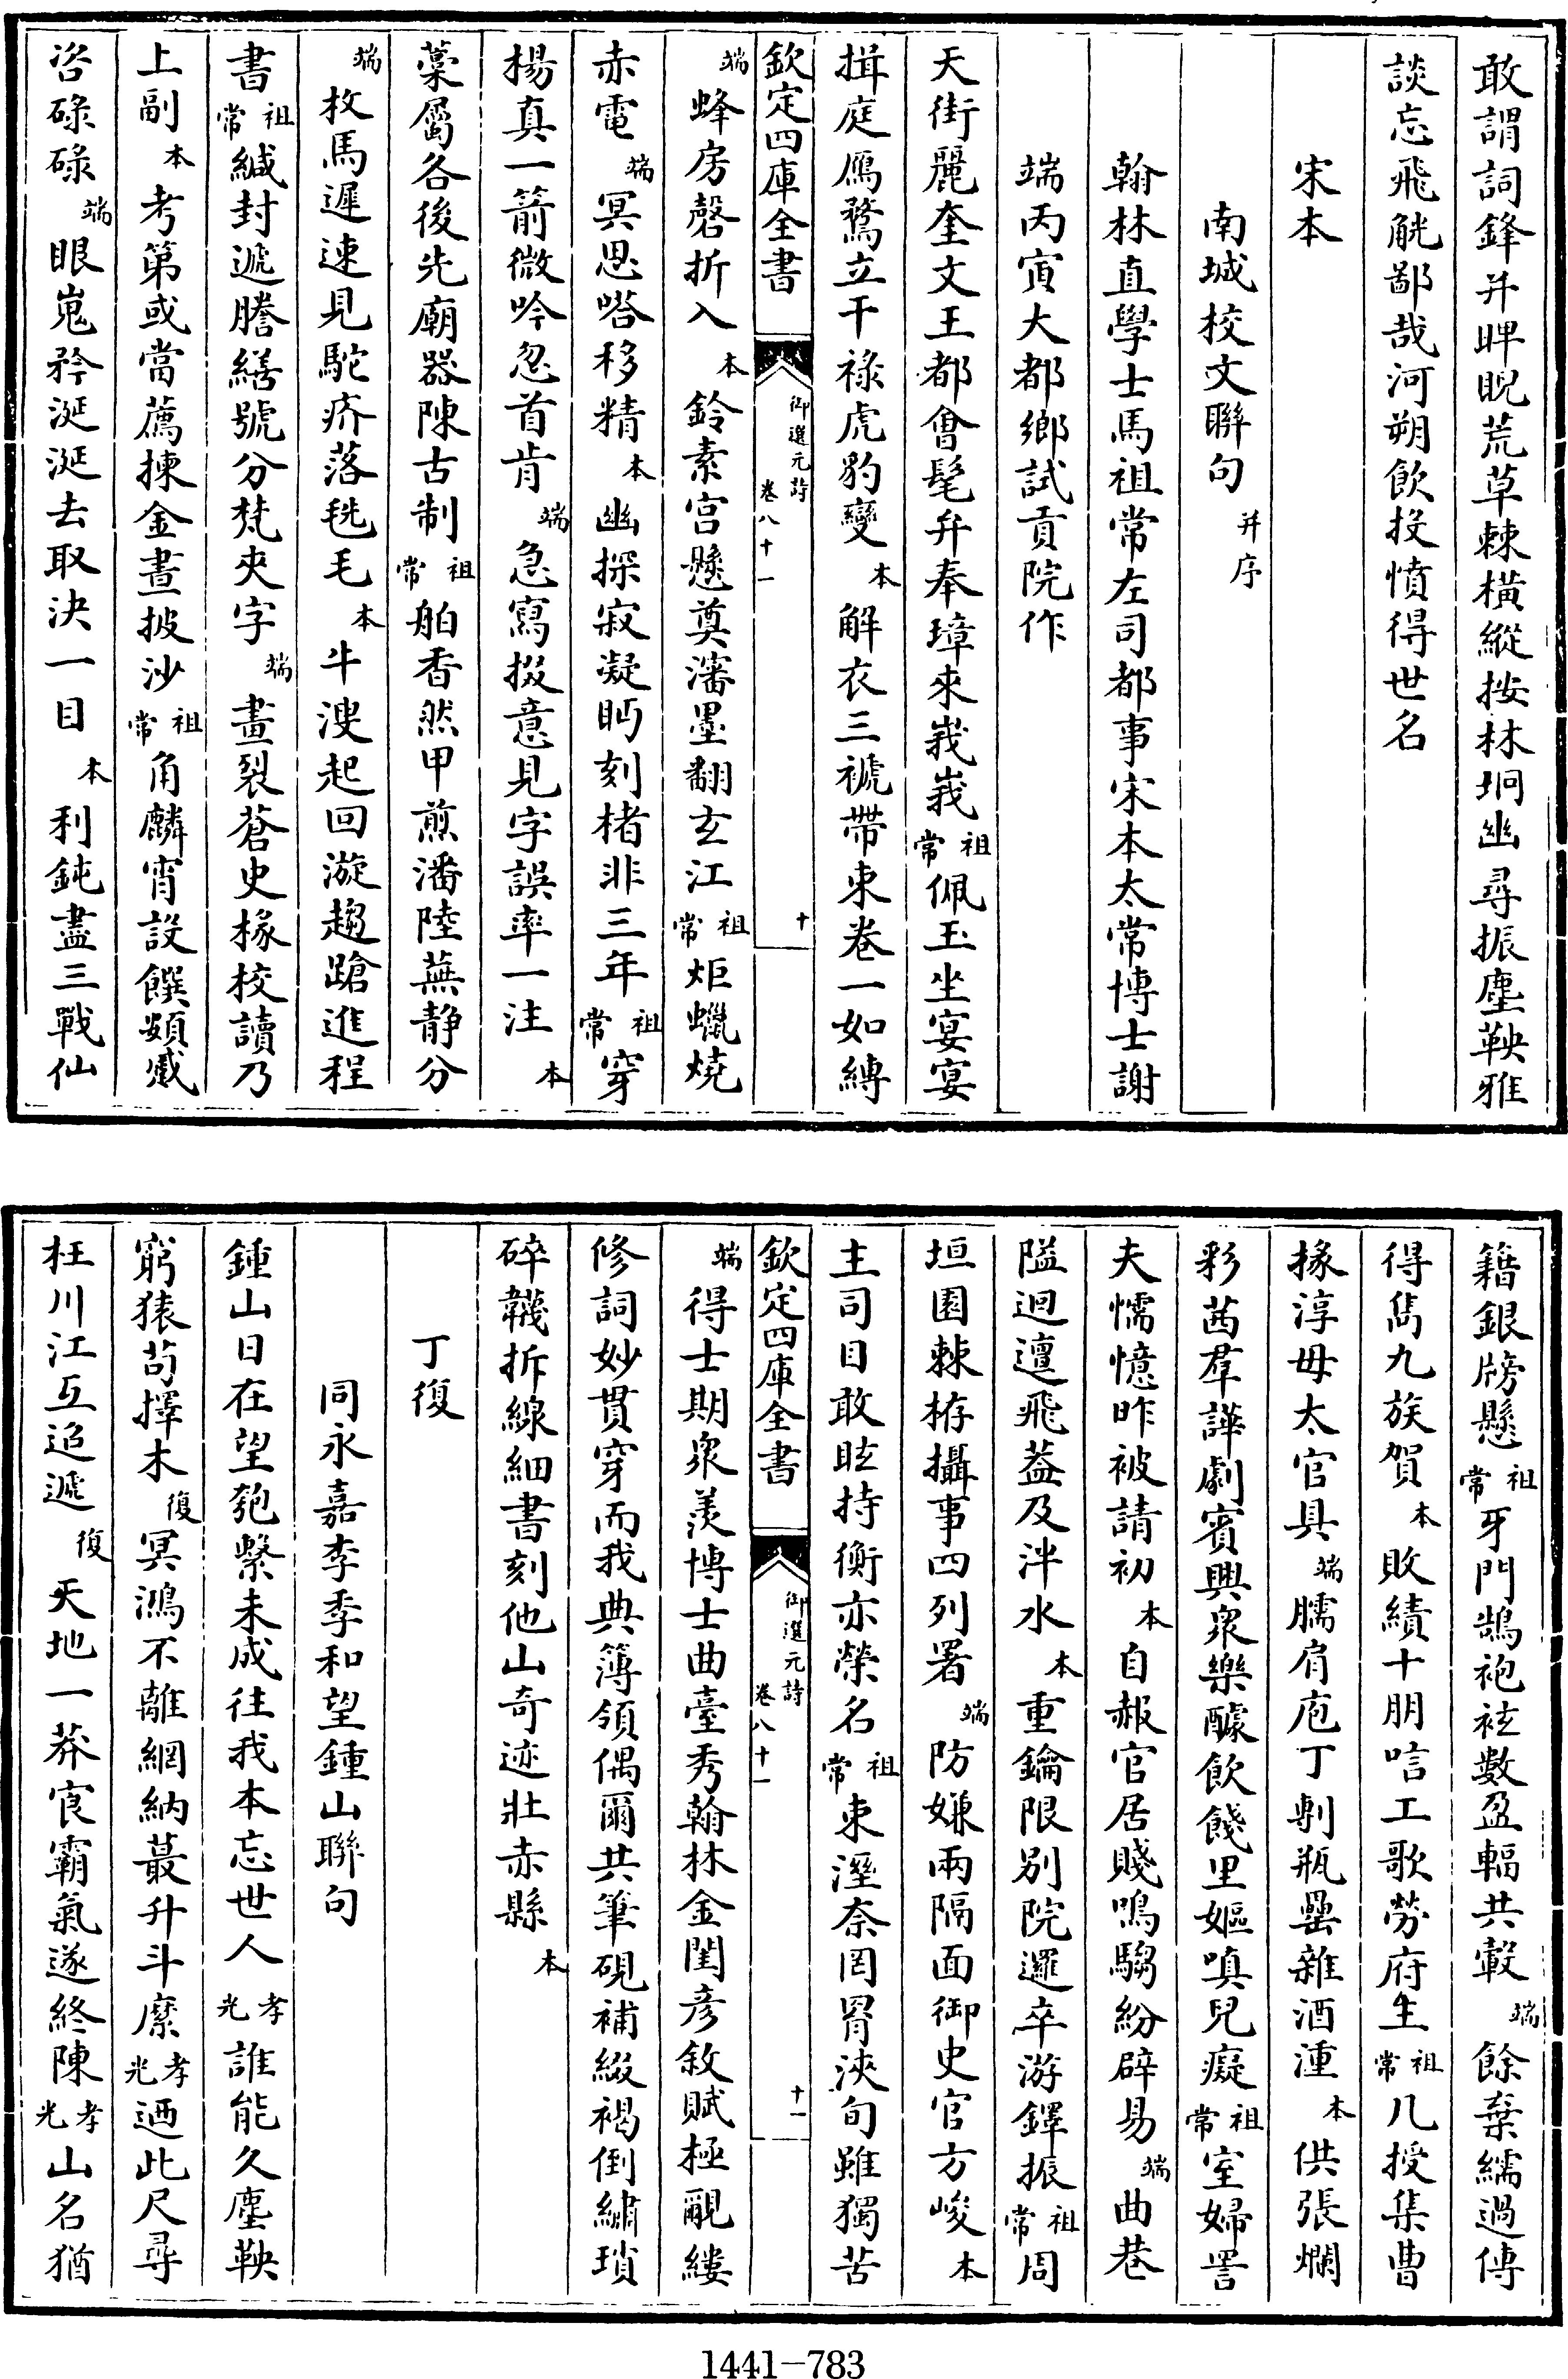 敢謂詞鋒并睥睨荒草棘橫縱按林坰幽尋振塵鞅雅
談忘飛觥鄙哉河朔飲投憤得世名
宋本
南城校文聯句并序
翰林直學士馬祖常左司都事宋本太常博士謝
端丙寅大都鄉試貢院作
天街麗奎文王都會髦弁奉璋來峩峩祖常佩玉坐宴宴
揖庭鴈鶩立干祿虎豹變本解衣三褫帶束卷一如縛
欽定四庫全書 御選元詩卷八十一 十
端蜂房磬折入本鈴素宮懸奠瀋墨翻玄江祖常炬蠟燒
赤電端冥思嗒移精本幽探寂凝眄刻楮非三年祖常穿
楊真一箭微吟忽首肯端急寫掇意見字誤率一注本
藁屬各後先廟器陳古制祖常舶香然甲煎潘陸蕪静分
端枚馬遲速見駝疥落毨毛本牛溲起回漩趨蹌進程
書祖常緘封遞謄繕號分梵夾字端畫裂蒼史椽校讀乃
上副本考第或當薦揀金晝披沙祖常角麟宵設饌頻感
咨碌碌端眼嵬矜涎涎去取決一目本利鈍盡三戰仙
籍銀牓懸祖常牙門鵠袍袨數盈輻共轂端餘棄繻過傳
得雋九族賀本敗績十朋唁工歌勞府生祖常几授集曹
掾淳母太官具端臑肩庖丁剸瓶罍雜酒湩本供張爛
彩茜羣譁劇賓興衆樂醵飲餞里嫗嗔兒癡祖常室婦詈
夫懦憶昨被請初本自赧官居賤鳴騶紛辟易端曲巷
隘迴邅飛葢及泮水本重鑰限別院邏卒游鐸振祖常周
垣圍棘栫攝事四列署端防嫌兩隔面御史官方峻本
主司目敢眩持衡亦榮名祖常束溼奈罔罥浹旬雖獨苦
欽定四庫全書 御選元詩卷八十一 十一
端得士期衆羨博士曲臺秀翰林金閨彥敘賦極覼縷
修詞妙貫穿而我典簿領偶爾共筆硯補綴褐倒繡瑣
碎韈拆線細書刻他山奇迹壯赤縣本
丁復
同永嘉李季和望鍾山聯句
鍾山日在望匏繫未成往我本忘世人孝光誰能久塵鞅
窮猿苟擇木復冥鴻不離網納蕞升斗縻孝光迺此尺尋
枉川江互追遞復天地一莽㝗霸氣遂終陳孝光山名猶
1441-783